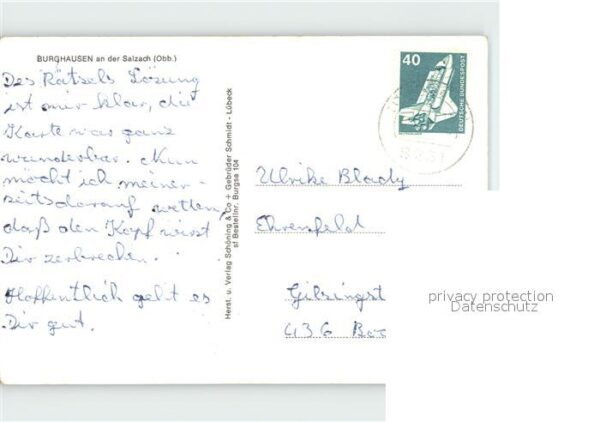 BURGHAUSEN an der Salzach (Obb.)
Des Rätsels Lösung
ist mir klar, die
Karte war ganz
wunderbar. Nun
möcht ich meiner-
seits darauf wetten,
daß den Kopf wirst
Dir zerbrechen.
Hoffentlich geht es
Dir gut.
Herst. u. Verlag Schöning & Co + Gebrüder Schmidt - Lübeck
sf Bestellnr. Burgsa 104
40
DEUTSCHE BUNDESPOST
Ulrike Blady
Ehrenfeld
Gilsingst
privacy protection
Datenschutz
436 Boc